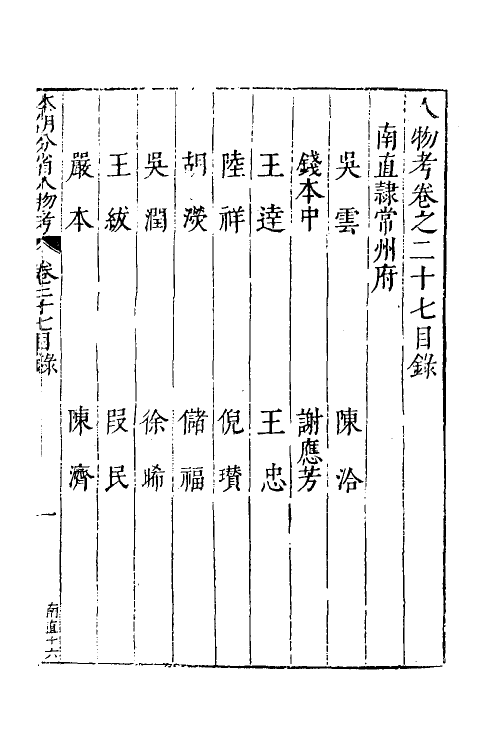 人物考卷之二十七目錄
南直隸常州府
吳雲 陳洽
錢本中 謝應芳
王達 王忠
陸祥 倪瓚
胡濙 儲福
吳潤 徐晞
王紱 段民
嚴本 陳濟
本朝分省人物考 卷二十七目錄 一 南直十六